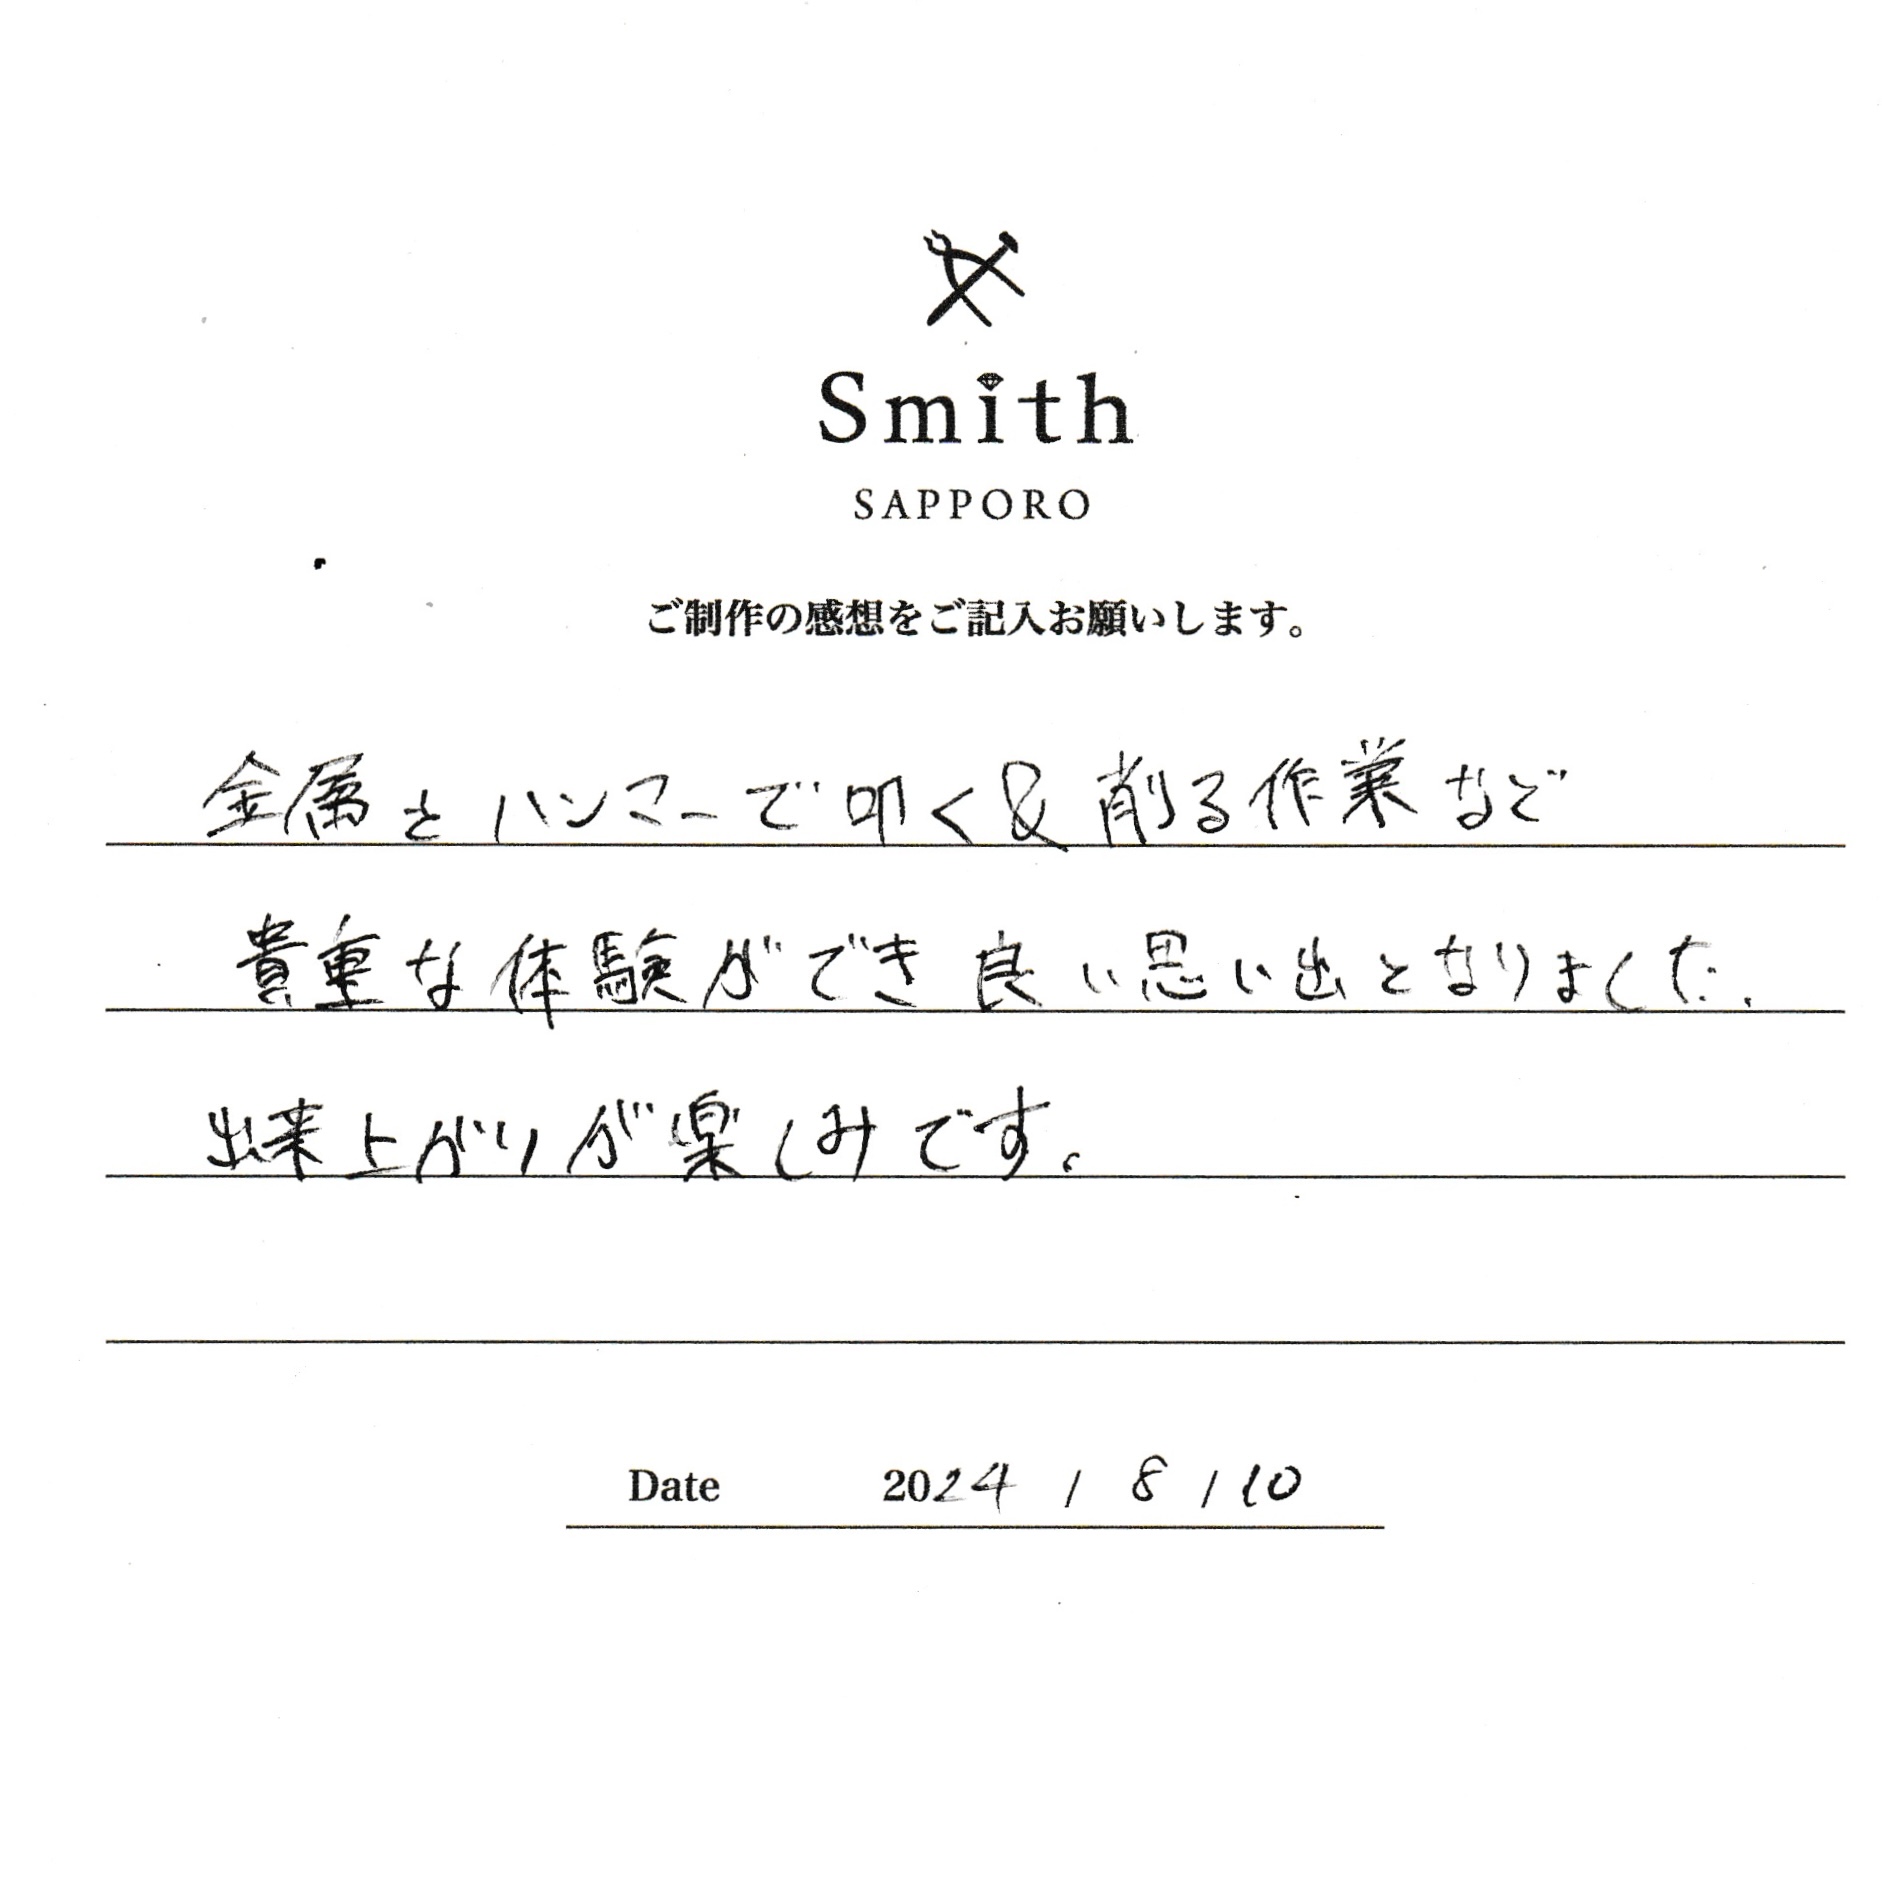 Smith
SAPPORO
ご制作の感想をご記入お願いします。
金属をハンマーで叩く&削る作業など
貴重な体験ができ良い思い出となりました。
出来上がりが楽しみです。
Date 2024 / 8 / 10